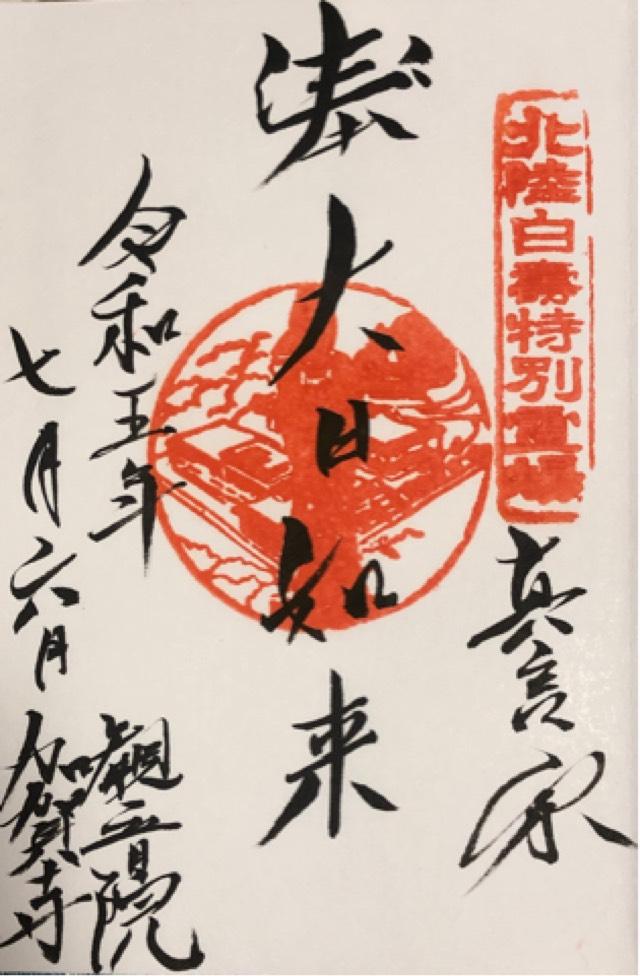 北陸白寿特別霊場
真言宗
奉
大日如来
令和五年
七月六日
観音院
加賀寺